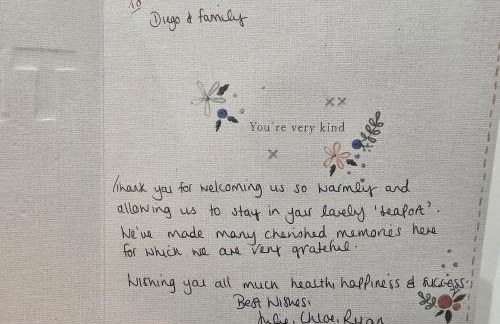 To
Diego & family
You're very kind
Thank you for welcoming us so warmly and
allowing us to stay in your lovely 'seaport'.
We've made many cherished memories here
for which we are very grateful.
Wishing you all much health, happiness & success.
Best Wishes,
Julie, Chloe, Ryan